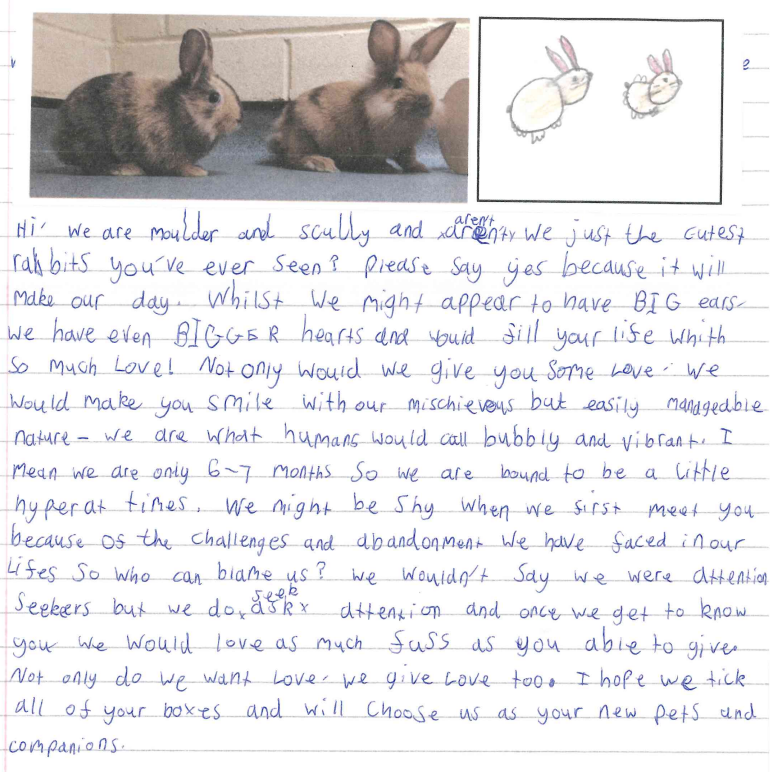 Hi, we are moulder and scully and arent we just the cutest
rabbits you've ever seen? Please say yes because it will
make our day. Whilst we might appear to have BIG ears,
we have even BIGGER hearts and would fill your life whith
so much Love! Not only would we give you some love, we
would make you smile with our mischievous but easily manageable
nature - we are what humans would call bubbly and vibrant. I
mean we are only 6-7 months so we are bound to be a little
hyper at times. We might be shy when we first meet you
because of the challenges and abandonment we have faced in our
lifes so who can blame us? we wouldn't say we were attention
seekers but we do seek attention and once we get to know
you we would love as much fuss as you able to give.
Not only do we want love, we give love too. I hope we tick
all of your boxes and will choose us as your new pets and
companions.